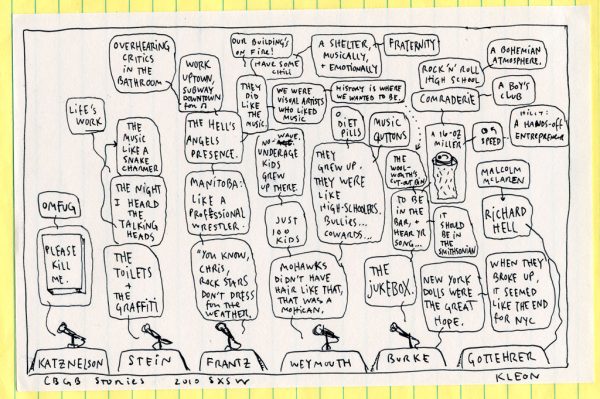 OVERHEARING
CRITICS
IN THE
BATHROOM
WORK
UPTOWN,
SUBWAY
DOWNTOWN
OUR BUILDING'S
ON FIRE!
HAVE SOME
CHILI
A SHELTER,
MUSICALLY,
+ EMOTIONALLY
FRATERNITY
ROCK 'N' ROLL
HIGH SCHOOL
A BOHEMIAN
ATMOSPHERE.
COMRADERIE
A BOY'S
CLUB
LIFE'S
WORK
THEY
DID
LIKE
THE
MUSIC
WE WERE
VISUAL ARTISTS
WHO LIKED
MUSIC
HISTORY IS WHERE
WE WANTED TO BE.
DIET
PILLS
MUSIC
GLUTTONS
A 16-OZ
MILLER
SPEED
HILLY:
A HANDS-OFF
ENTREPRENEUR
THE
MUSIC
LIKE A
SNAKE
CHARMER
THE HELL'S
ANGELS
PRESENCE.
NO-WAVE
UNDERAGE
KIDS
GREW
UP THERE.
THEY
GREW UP.
THEY WERE
LIKE
HIGH-SCHOOLERS.
BULLIES...
COWARDS...
THE
WOOL-
WORTH'S
CUT-OUT BIN
MALCOLM
MCLAREN
THE NIGHT
I HEARD
THE
TALKING
HEADS
MANITOBA:
LIKE A
PROFESSIONAL
WRESTLER.
JUST
100
KIDS
TO BE
IN THE
BAR, +
HEAR YR
SONG...
IT
SHOULD
BE IN THE
SMITHSONIAN
RICHARD
HELL
OMFUG
PLEASE
KILL
ME.
THE
TOILETS
+ THE
GRAFFITI
"YOU KNOW,
CHRIS,
ROCK STARS
DON'T DRESS
FOR THE
WEATHER.
MOHAWKS
DIDN'T HAVE
HAIR LIKE THAT,
THAT WAS A
MOHICAN.
THE
JUKEBOX.
NEW YORK
DOLLS WERE
THE GREAT
HOPE.
WHEN THEY
BROKE UP,
IT SEEMED
LIKE THE END
FOR NYC
KATZNELSON
STEIN
FRANTZ
WEYMOUTH
BURKE
GOTTEHRER
CBGB STORIES 2010 SXSW
KLEON